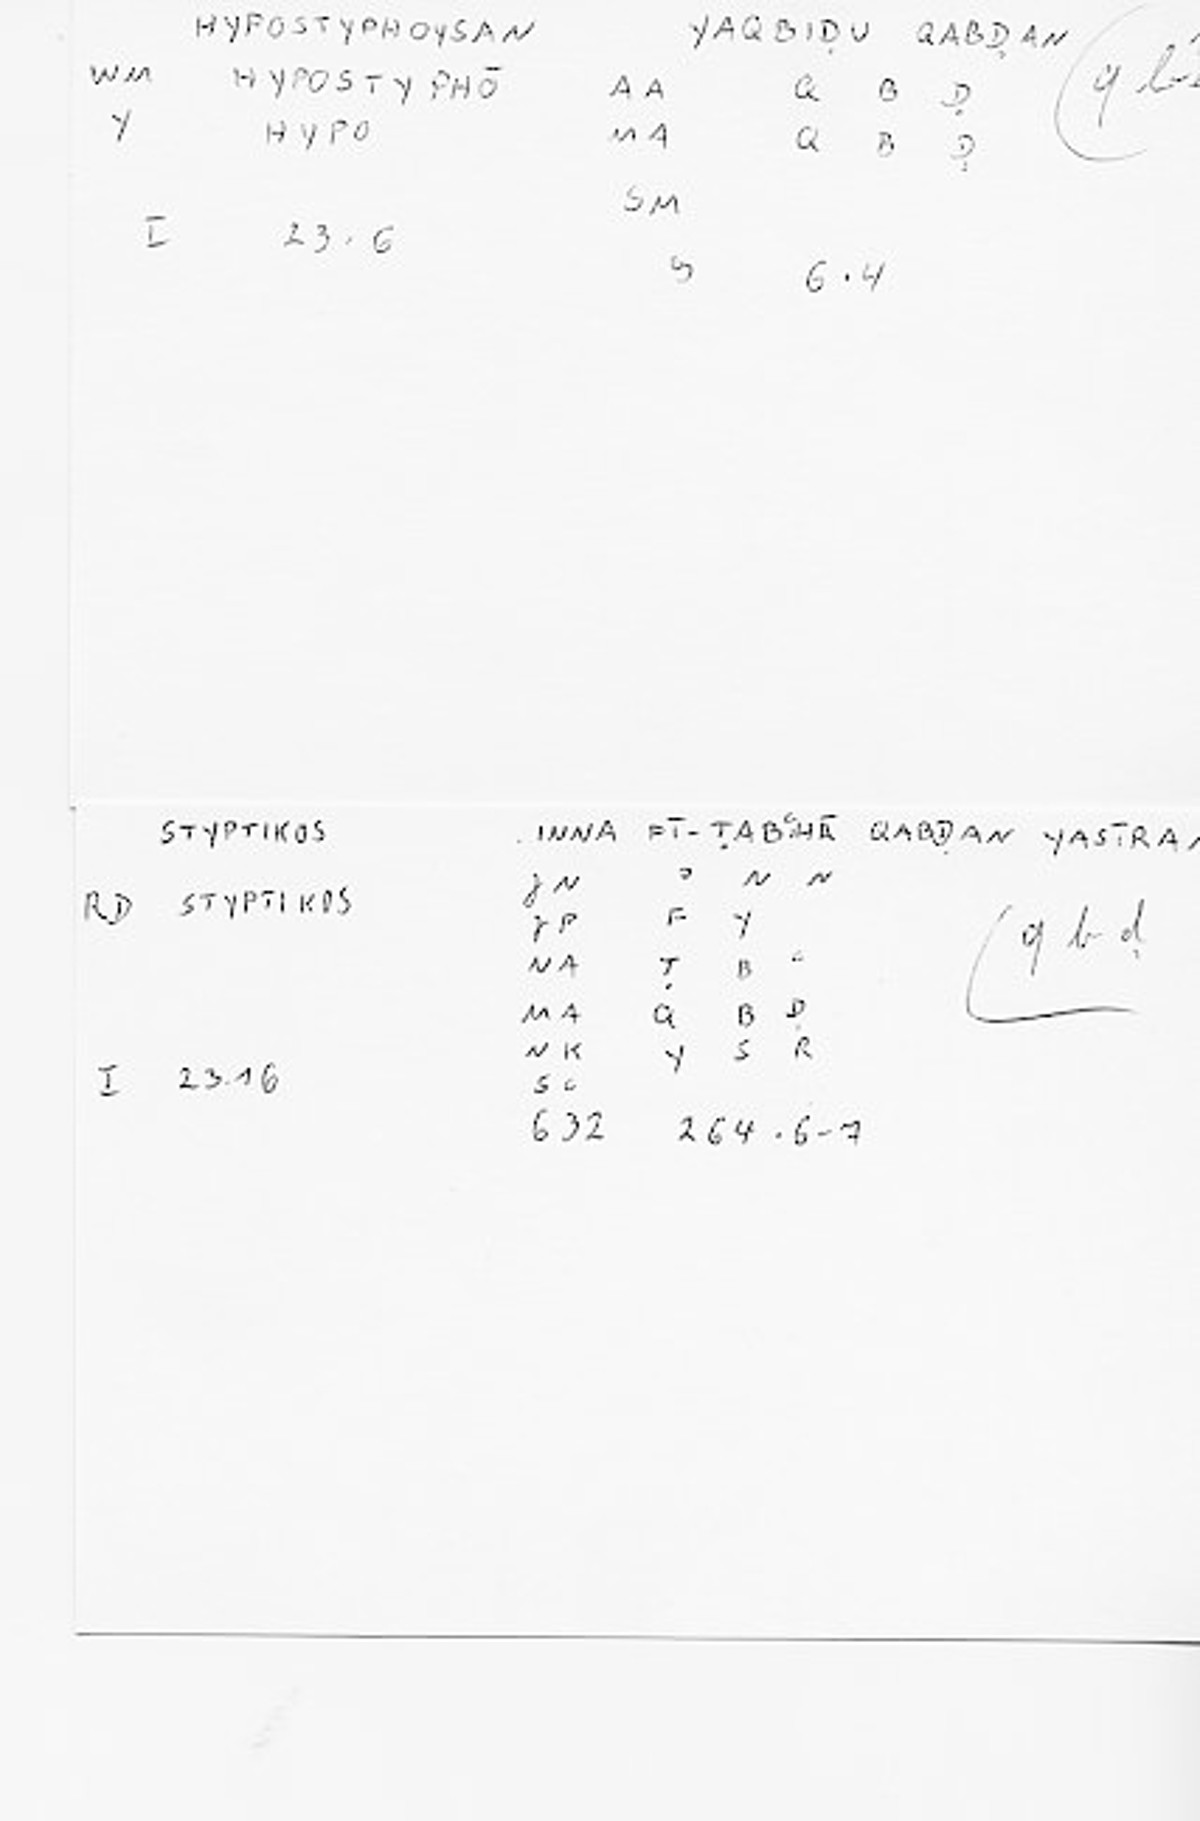 HYPOSTYPHOYSAN YAQBIḌU QABḌAN
WM HYPOSTYPHŌ AA Q B Ḍ
Y HYPO MA Q B Ḍ
SM
I 23.6
6.4
STYPTIKOS INNA FĪ-ṬABʿHĪ QABḌAN
ʾ N N
RD STYPTIKOS F Y
q b ḍ
NA Ṭ B ʿ
MA Q B Ḍ
NK Y S R
I 23.16
632 264.6-7